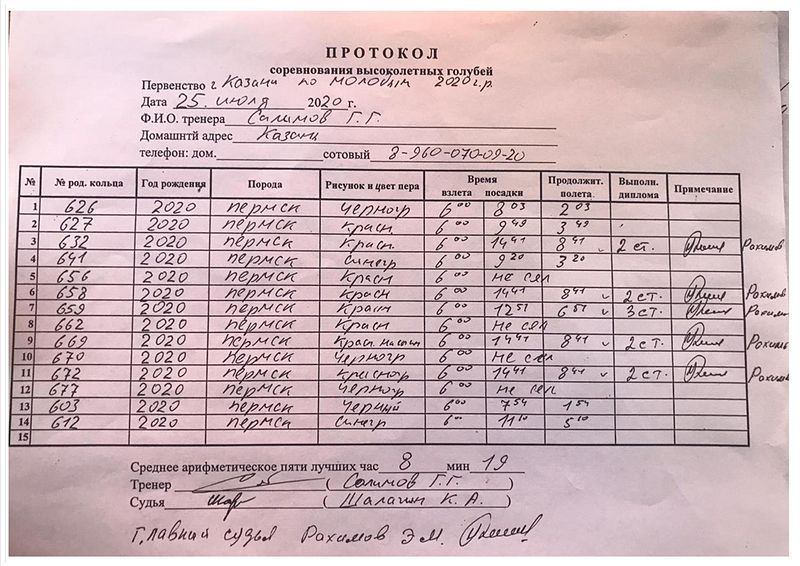 ПРОТОКОЛ
соревнования высоколетных голубей
Первенство г Казани по молодым 2020г.р.
Дата 25. июля 2020 г.
Ф.И.О. тренера Салимов Г.Г.
Домашнтй адрес Казань
телефон: дом. сотовый 8-960-070-09-20
№ № род. кольца Год рождения Порода Рисунок и цвет пера Время взлета посадки Продолжит. полета. Выполн. диплома Примечание
1 626 2020 пермск черногр 6 00 8 03 2 03
2 627 2020 пермск красн 6 00 9 49 3 49
3 632 2020 пермск красн. 6 00 14 41 8 41 2 ст. Рахимов
4 641 2020 пермск синегр 6 00 9 20 3 20
5 656 2020 пермск Красн 6 00 не сел
6 658 2020 пермск Красн 6 00 14 41 8 41 2 ст. Рахимов
7 659 2020 пермск Красн. 6 00 12 51 6 51 3 ст. Рахимов
8 662 2020 пермск Красн 6 00 не сел
9 669 2020 пермск Красн. 6 00 14 41 8 41 2 ст. Рахимов
10 670 2020 пермск Черногр 6 00 не сел
11 672 2020 пермск Красногр 6 00 14 41 8 41 2 ст. Рахимов
12 677 2020 пермск Черногр 6 00 не сел
13 603 2020 пермск Черный 6 00 7 54 1 54
14 612 2020 пермск Синегр 6 00 11 10 5 10
15
Среднее арифметическое пяти лучших час 8 мин 19
Тренер ( Салимов Г.Г. )
Судья ( Шалагин К. А. )
Главный судья Рахимов Э.М.